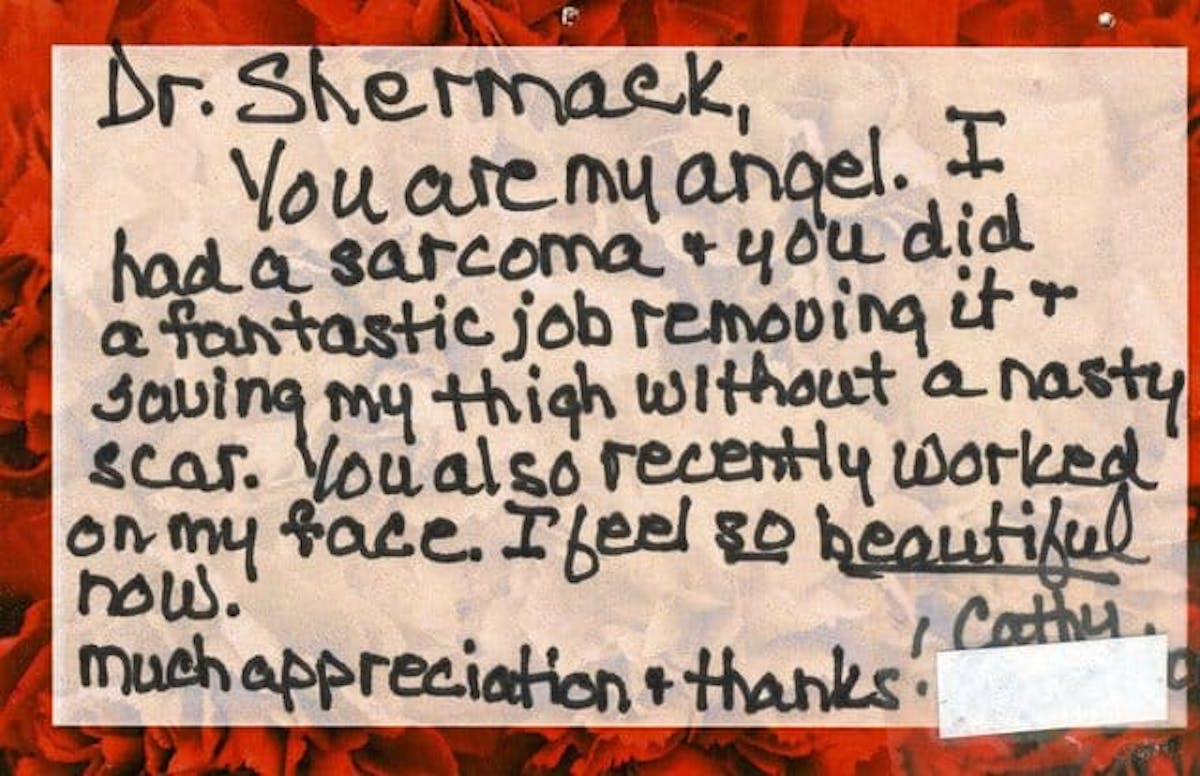 Dr. Shermack,
You are my angel. I
had a sarcoma + you did
a fantastic job removing it +
saving my thigh without a nasty
scar. You also recently worked
on my face. I feel so beautiful
now.
much appreciation + thanks!
Cathy